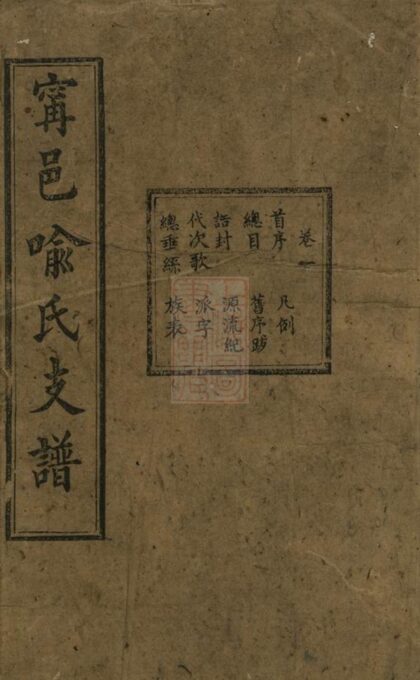 甯邑喻氏支譜
卷一
首序 凡例
總目 舊序跋
誥封 源流紀
代次歌 派字
總垂絲 族表